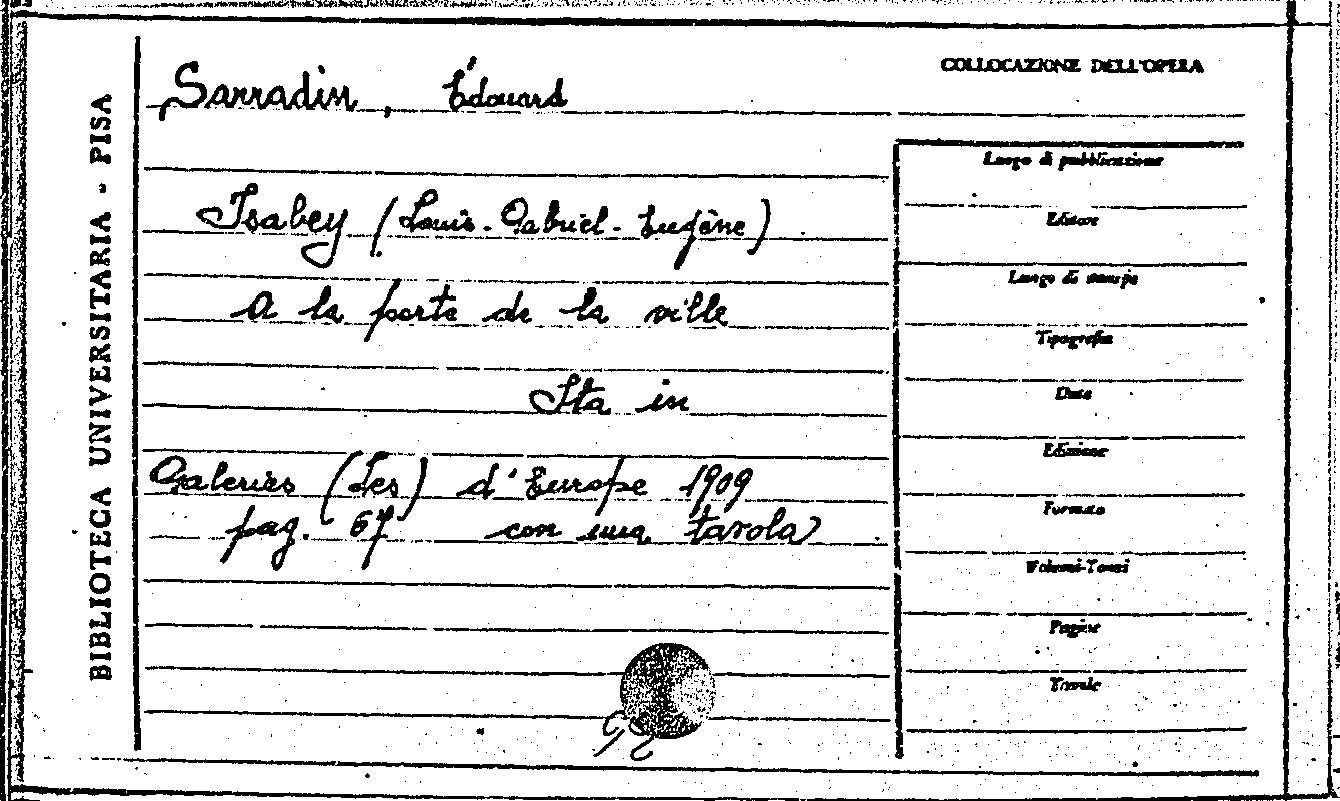 BIBLIOTECA UNIVERSITARIA - PISA
Sarradin, Édouard
Isabey (Louis-Gabriel-Eugène)
A la porte de la ville
Sta in
Galeries (Les) d'Europe 1909
pag. 67 con una tavola
COLLOCAZIONE DELL'OPERA
Luogo di pubblicazione
Editore
Luogo di stampa
Tipografia
Data
Edizione
Formato
Volumi-Tomi
Pagine
Tavole